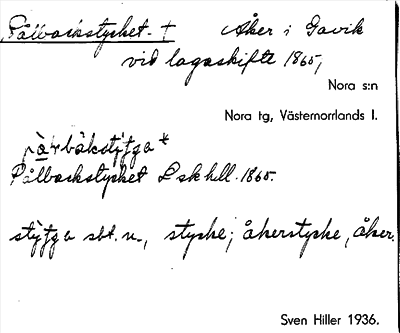 Pålbackstycket. † Åker i Gavik
vid lagaskifte 1865,
Nora s:n
Nora tg, Västernorrlands l.
Pålbackstycket L sk hll. 1865.
sbt. n., stycke; åkerstycke, åker.
Sven Hiller 1936.